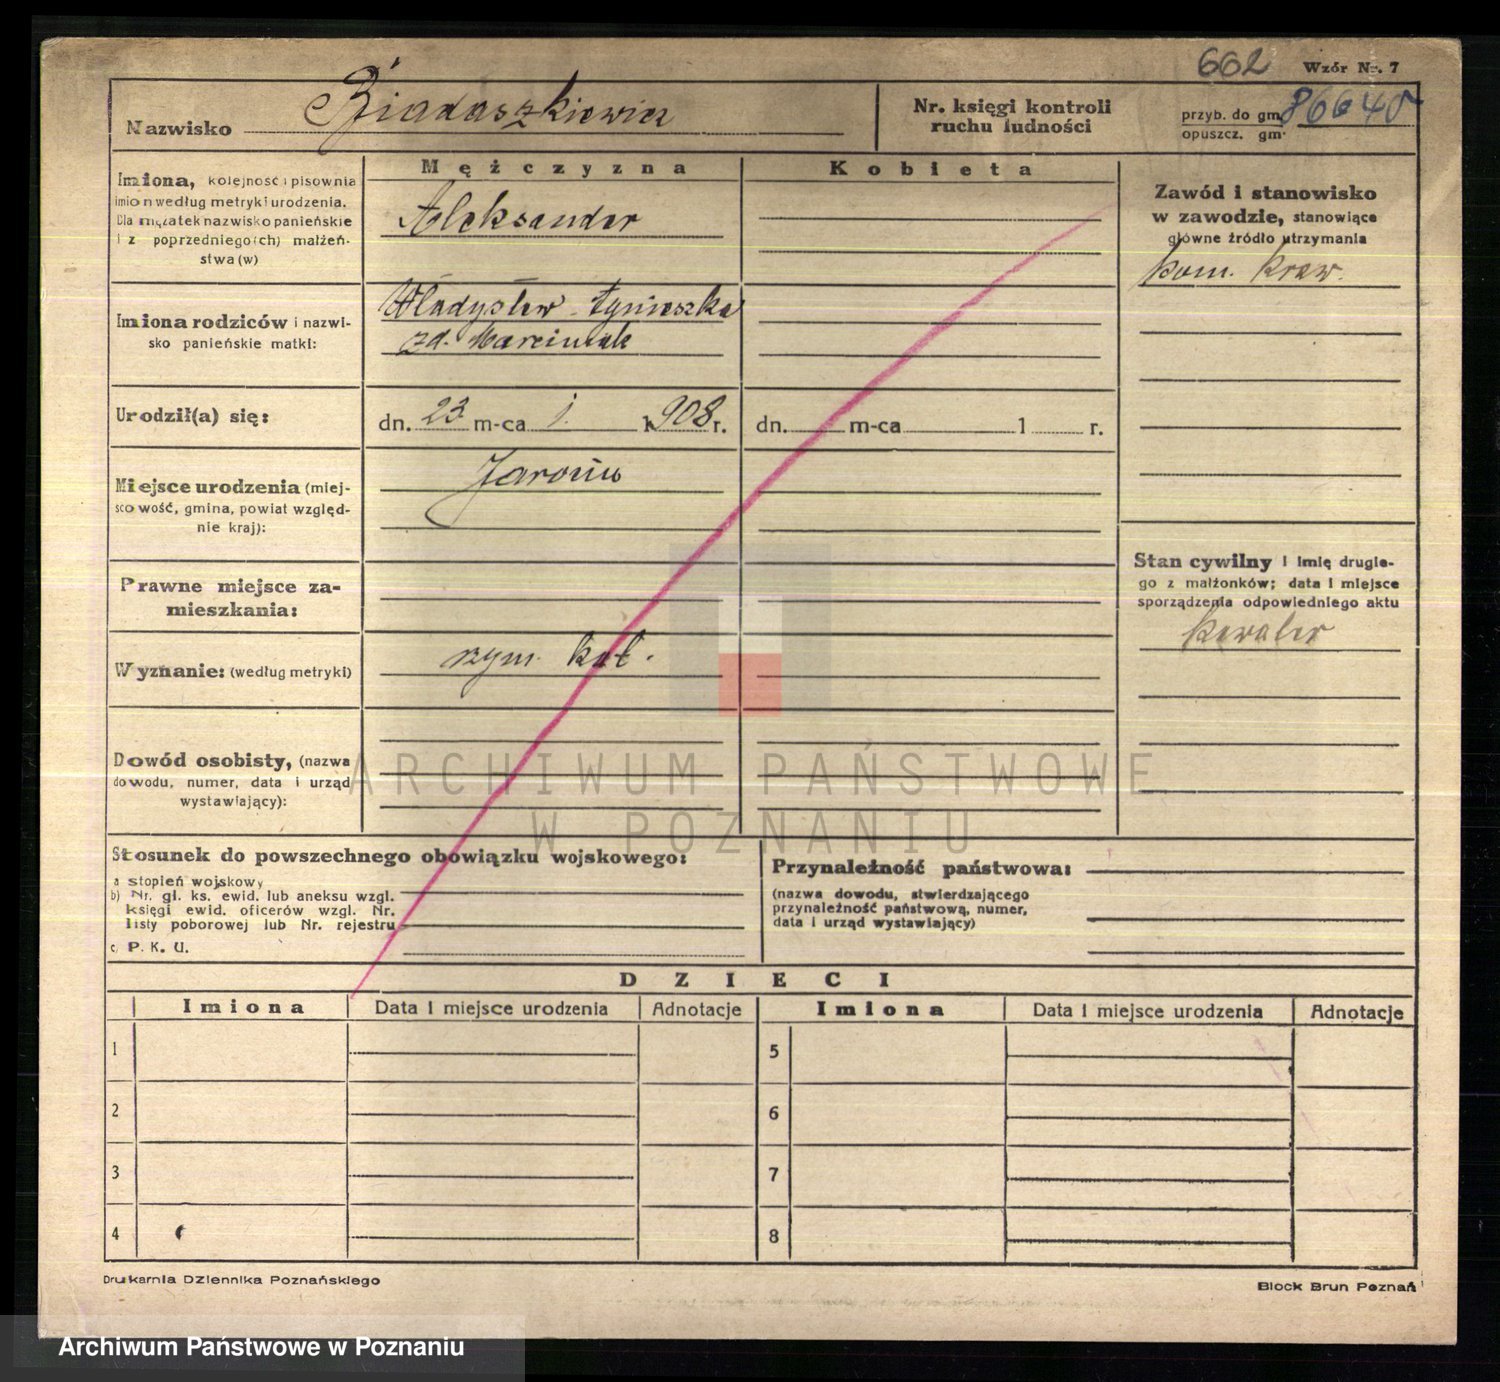 662 Wzór Nr. 7
Nazwisko Biadaszkiewicz
Nr. księgi kontroli
ruchu ludności
przyb. do gm. 86640
opuszcz. gm.
Mężczyzna
Kobieta
Imiona, kolejność i pisownia
imion według metryki urodzenia.
Dla mężatek nazwisko panieńskie
i z poprzedniego(ch) małżeń-
stwa (w)
Aleksander
Zawód i stanowisko
w zawodzie, stanowiące
główne źródło utrzymania
pom. kraw.
Imiona rodziców i nazwi-
sko panieńskie matki:
Władysław - Agnieszka
zd. Marciniak
Urodził(a) się:
dn. 23 m-ca 1. 1908 r.
dn. m-ca 1 r.
Miejsce urodzenia (miej-
scowość, gmina, powiat względ-
nie kraj):
Jarocin
Prawne miejsce za-
mieszkania:
Stan cywilny i imię drugie-
go z małżonków; data i miejsce
sporządzenia odpowiedniego aktu
kawaler
Wyznanie: (według metryki)
rzym. kat.
Dowód osobisty, (nazwa
dowodu, numer, data i urząd
wystawiający):
ARCHIWUM PAŃSTWOWE
W POZNANIU
Stosunek do powszechnego obowiązku wojskowego:
a stopień wojskowy
b) Nr. gł. ks. ewid. lub aneksu wzgl.
księgi ewid. oficerów wzgl. Nr.
listy poborowej lub Nr. rejestru
c. P. K. U.
Przynależność państwowa:
(nazwa dowodu, stwierdzającego
przynależność państwową, numer,
data i urząd wystawiający)
DZIECI
Imiona Data i miejsce urodzenia Adnotacje Imiona Data i miejsce urodzenia Adnotacje
1 5
2 6
3 7
4 8
Drukarnia Dziennika Poznańskiego
Block Brun Poznań
Archiwum Państwowe w Poznaniu